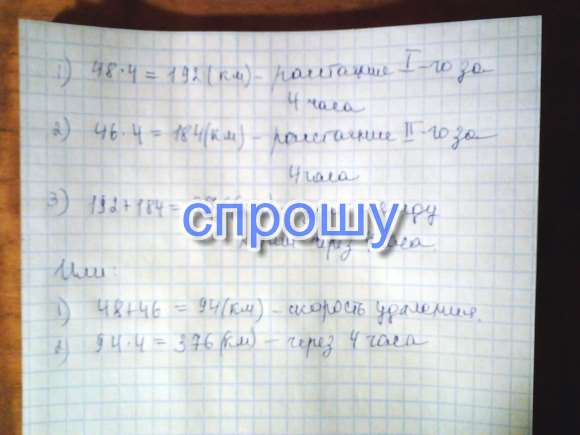 1) 48·4 = 192 (км) – расстояние I-го за
4 часа
2) 46·4 = 184 (км) – расстояние II-го за
4 часа
3) 192+184 =
спрошу
через часа
Или:
1) 48+46 = 94 (км) – скорость удаления.
2) 94·4 = 376 (км) – через 4 часа